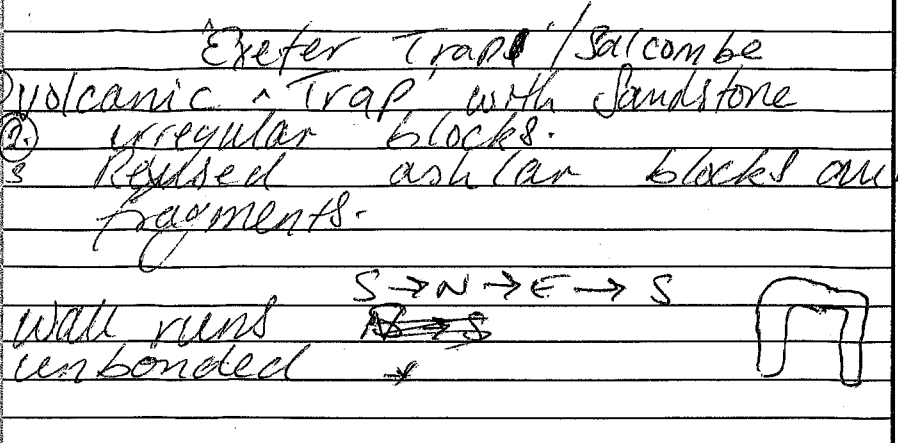 'Exeter Trap' / Salcombe
1) volcanic ^ Trap, with Sandstone
2. irregular blocks.
3 Reused ashlar blocks and
fragments.
S → N → E → S
Wall runs
unbonded